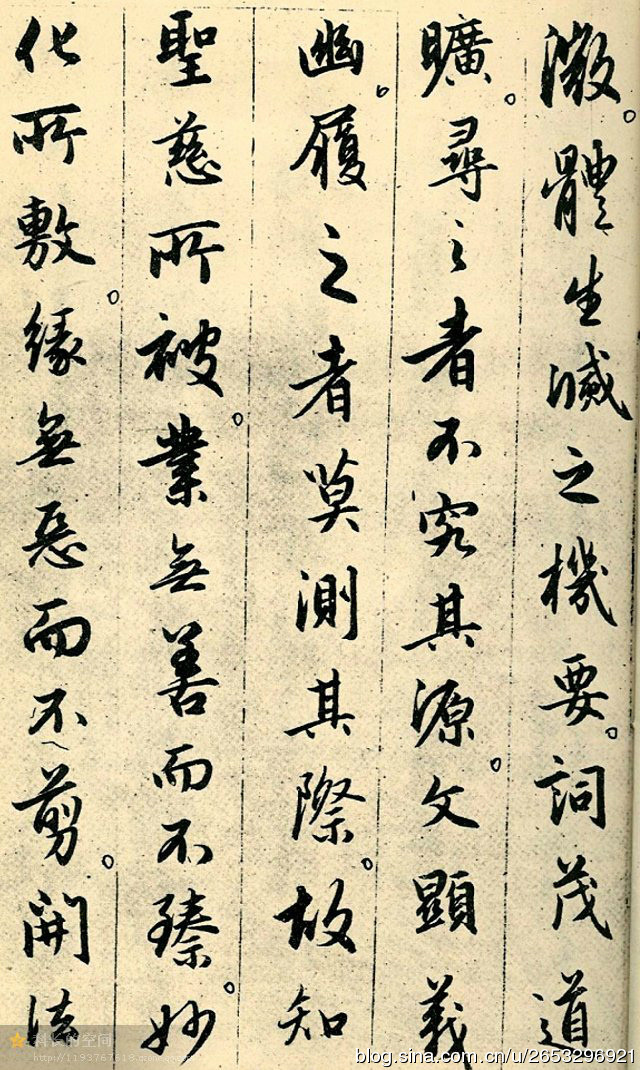 澂。體生滅之機要。詞茂道
曠。尋之者不究其源。文顯義
幽。履之者莫測其際。故知
聖慈所被。業無善而不臻。妙
化所敷。緣無惡而不剪。開法
科长的空间
http://1193767618.qzone.qq.com
blog.sina.com.cn/u/2653296921